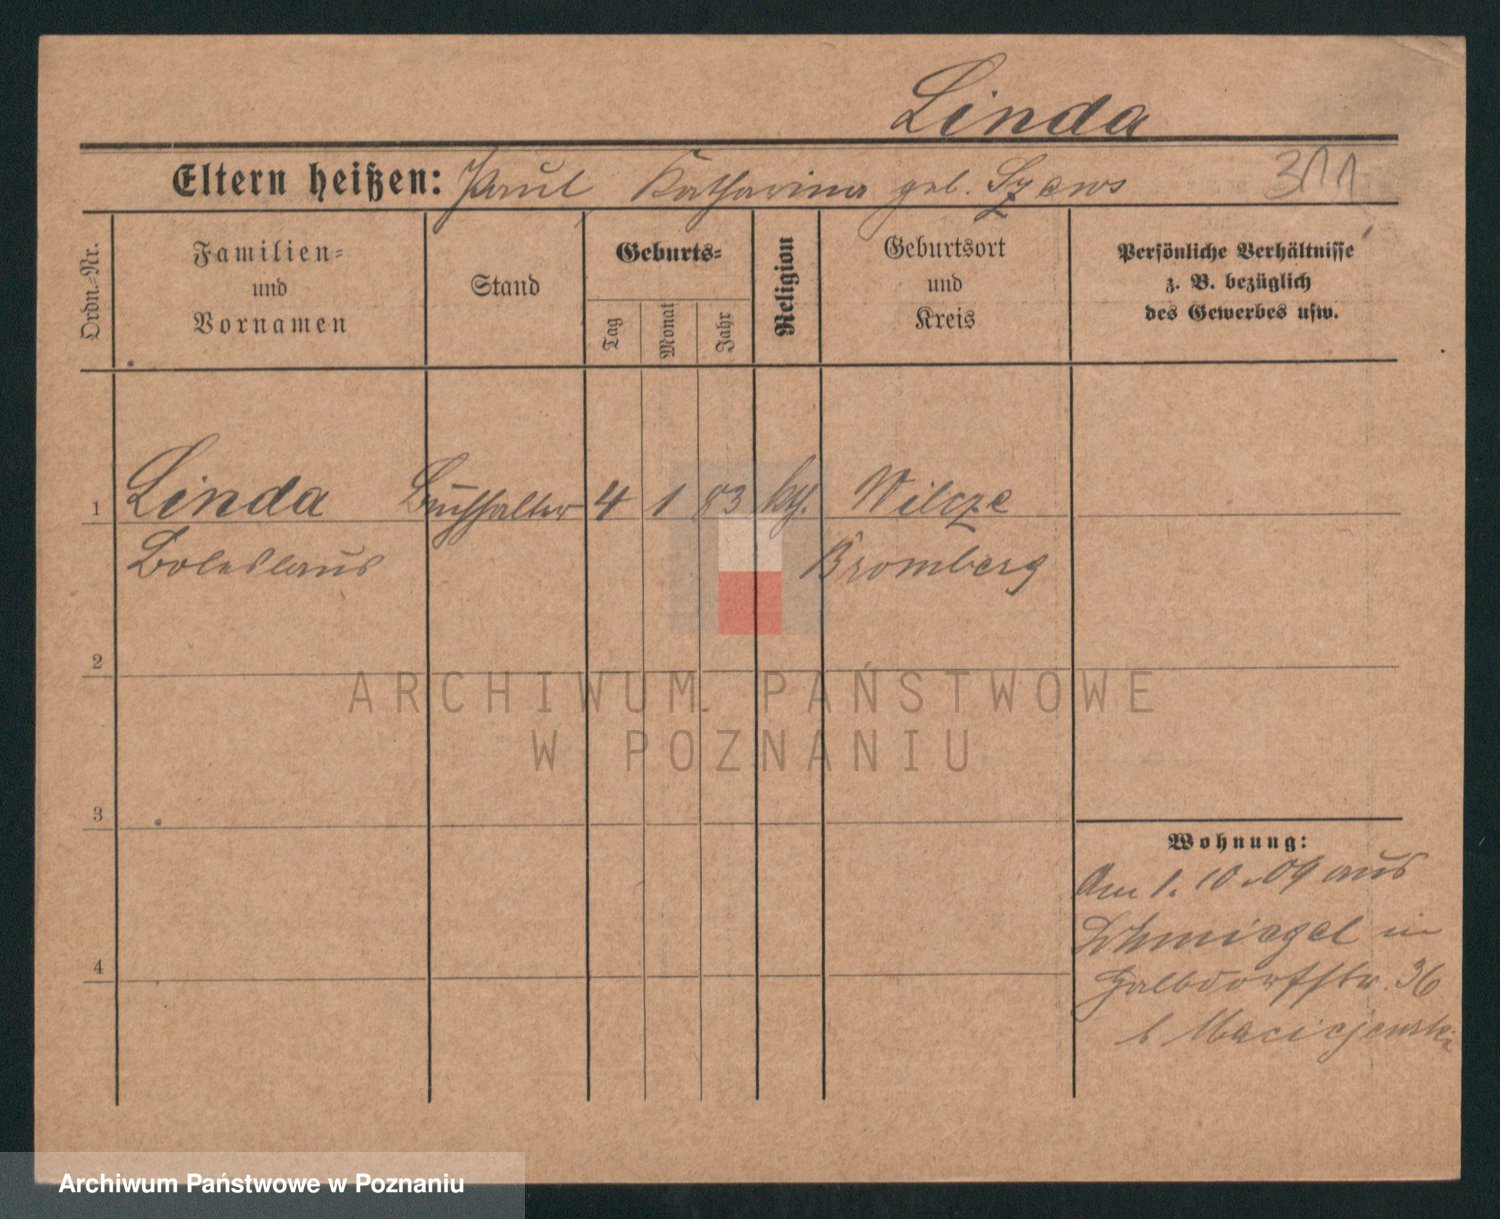 Linda
Eltern heißen: Paul Katharina geb. Szews 311
Ordn.-Nr.
Familien-
und
Vornamen
Stand
Geburts-
Tag
Monat
Jahr
Religion
Geburtsort
und
Kreis
Persönliche Verhältnisse
z. B. bezüglich
des Gewerbes usw.
1 Linda Buchhalter 4 1 83 kth. Wilcze
Boleslaus Bromberg
2
3
4
Wohnung:
Am 1. 10. 09 aus
Schmiegel in
Halbdorfstr. 36
b Maciejewski
ARCHIWUM PAŃSTWOWE
W POZNANIU
Archiwum Państwowe w Poznaniu